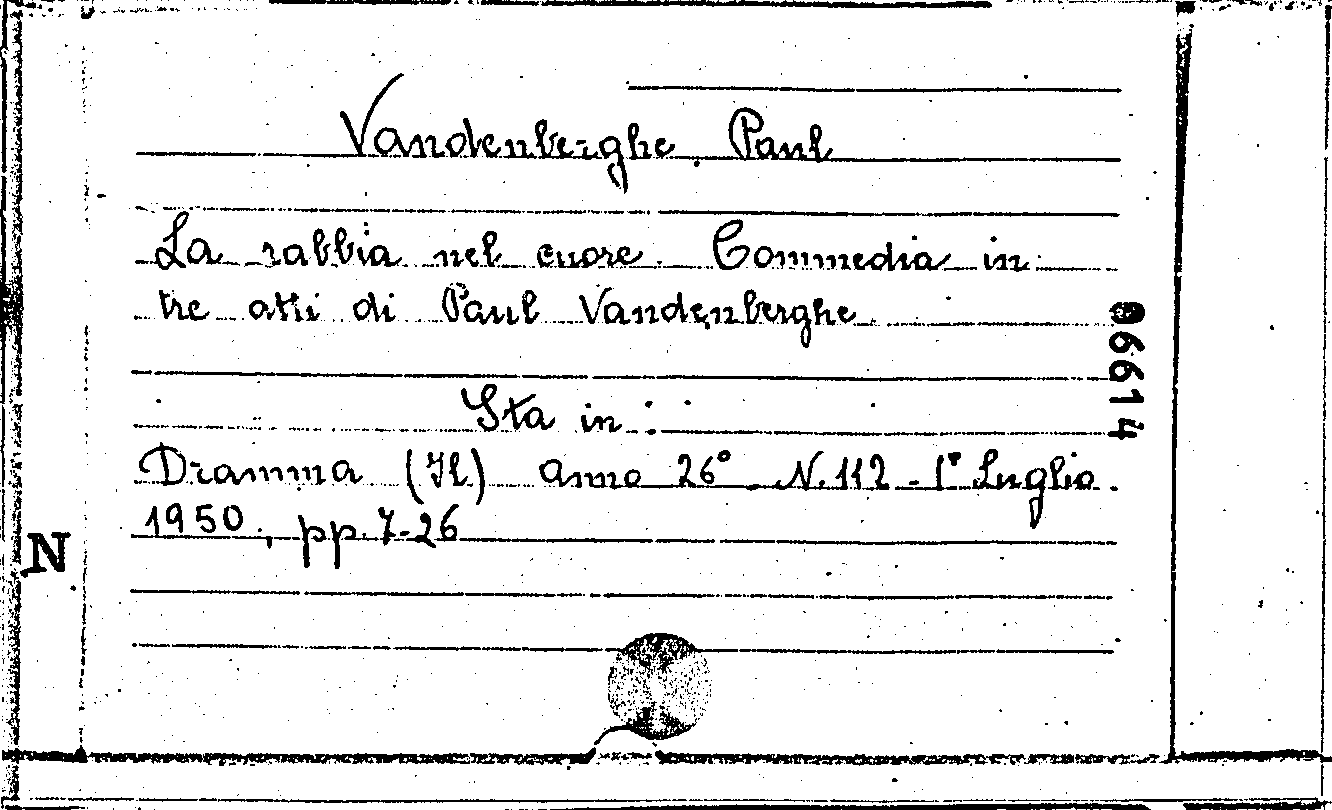 Vandenberghe Paul
La rabbia nel cuore. Commedia in
tre atti di Paul Vandenberghe
Sta in:
Dramma (Il) anno 26° N. 112 - 1° Luglio
1950, pp. 7-26
N
06614